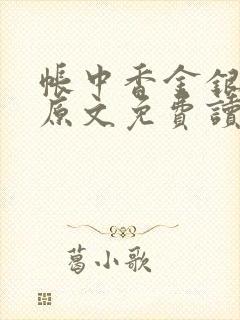 帳中香金銀
原文免費讀
葛小歌